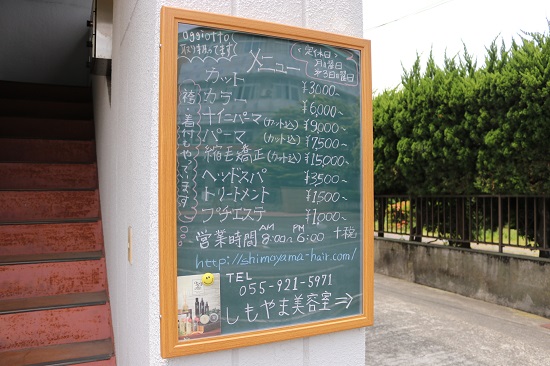 oggiotto
取り扱ってます
メニュー
定休日
月曜日
第3日曜日
袴着付もやってます
カット ¥3,000~
カラー ¥6,000~
ナイーバーマ(カット込) ¥9,000~
パーマ (カット込) ¥7,500~
縮毛矯正(カット込) ¥15,000~
ヘッドスパ ¥3,500~
トリートメント ¥1,500~
プチエステ ¥1,000~
+税
営業時間 AM 8:00~PM 6:00
http://shimoyama-hair.com/
TEL
055-921-5971
しもやま美容室⇒